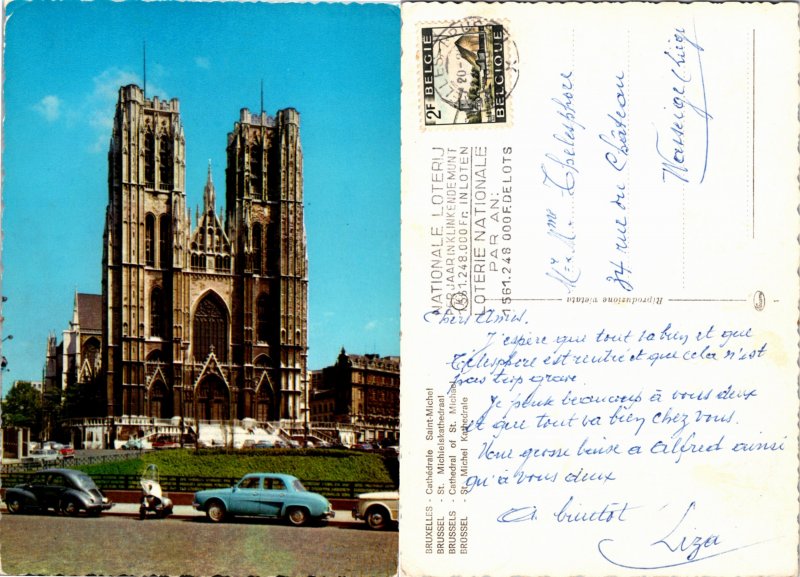 BELGIE
BELGIQUE
2F
NATIONALE LOTERIJ
PER JAAR IN KLINKENDE MUNT
561.248.000 Fr. IN LOTEN
LOTERIE NATIONALE
PAR AN:
561.248.000 F. DE LOTS
Mr. Mme Thelesphore
34 rue du Château
Wasseige (Liège)
Riproduzione vietata
Chers Amis,
J'espère que tout va bien et que
Télesphore est rentré et que cela n'est
pas trop grave.
Je pense beaucoup à vous deux
et que tout va bien chez vous.
Une grosse baise a Alfred ainsi
qu'à vous deux
A bientôt
Liza
BRUXELLES - Cathédrale Saint-Michel
BRUSSEL - St. Michielskathedraal
BRUSSELS - Cathedral of St. Michael
BRÜSSEL - St. Michel Kathedrale